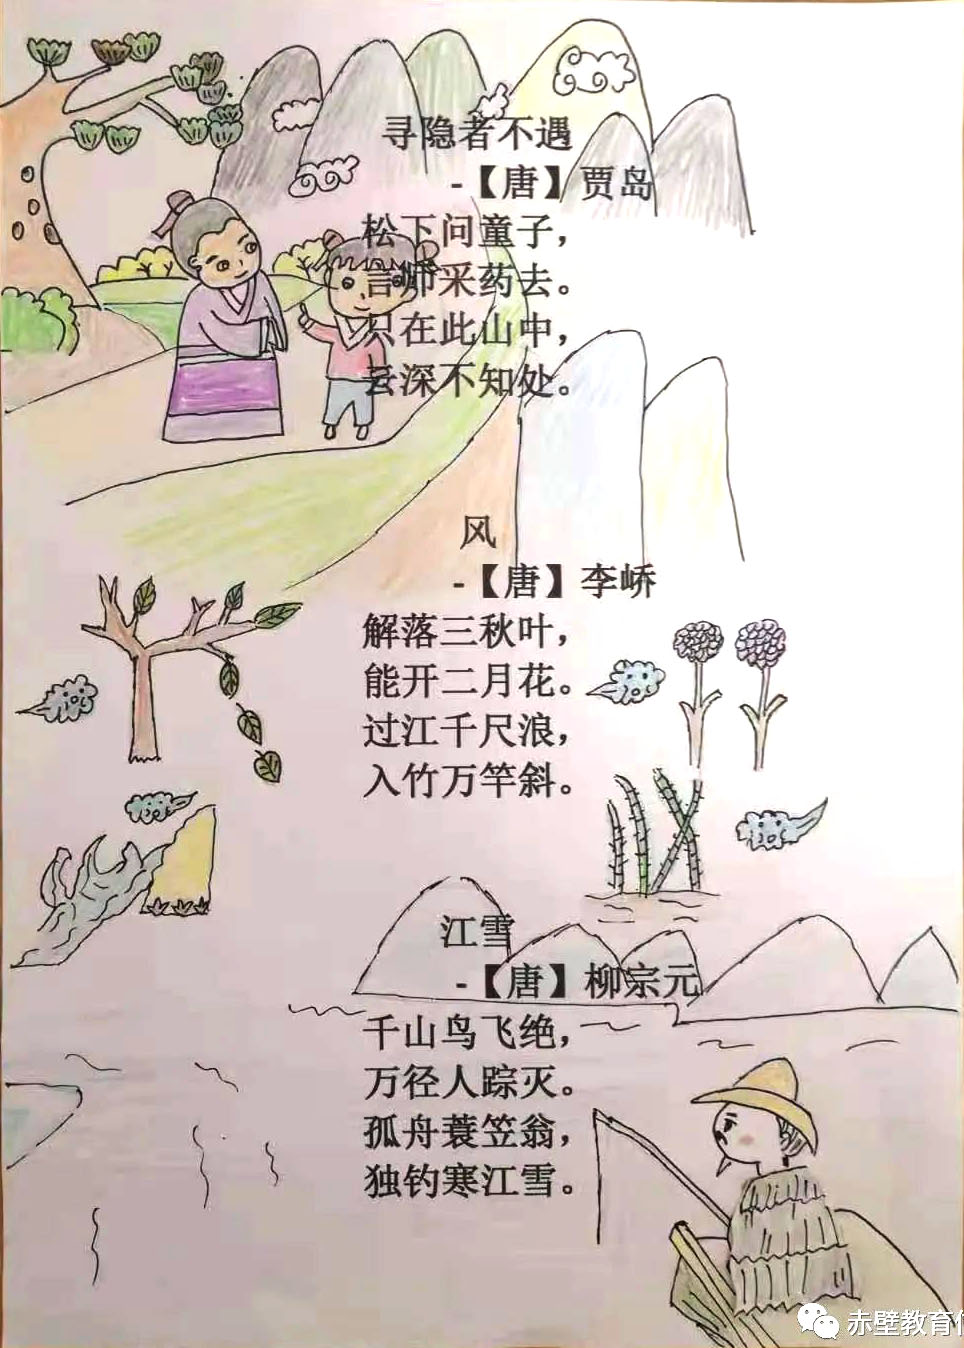 寻隐者不遇
-【唐】贾岛
松下问童子，
言师采药去。
只在此山中，
云深不知处。
风
-【唐】李峤
解落三秋叶，
能开二月花。
过江千尺浪，
入竹万竿斜。
江雪
-【唐】柳宗元
千山鸟飞绝，
万径人踪灭。
孤舟蓑笠翁，
独钓寒江雪。
赤壁教育